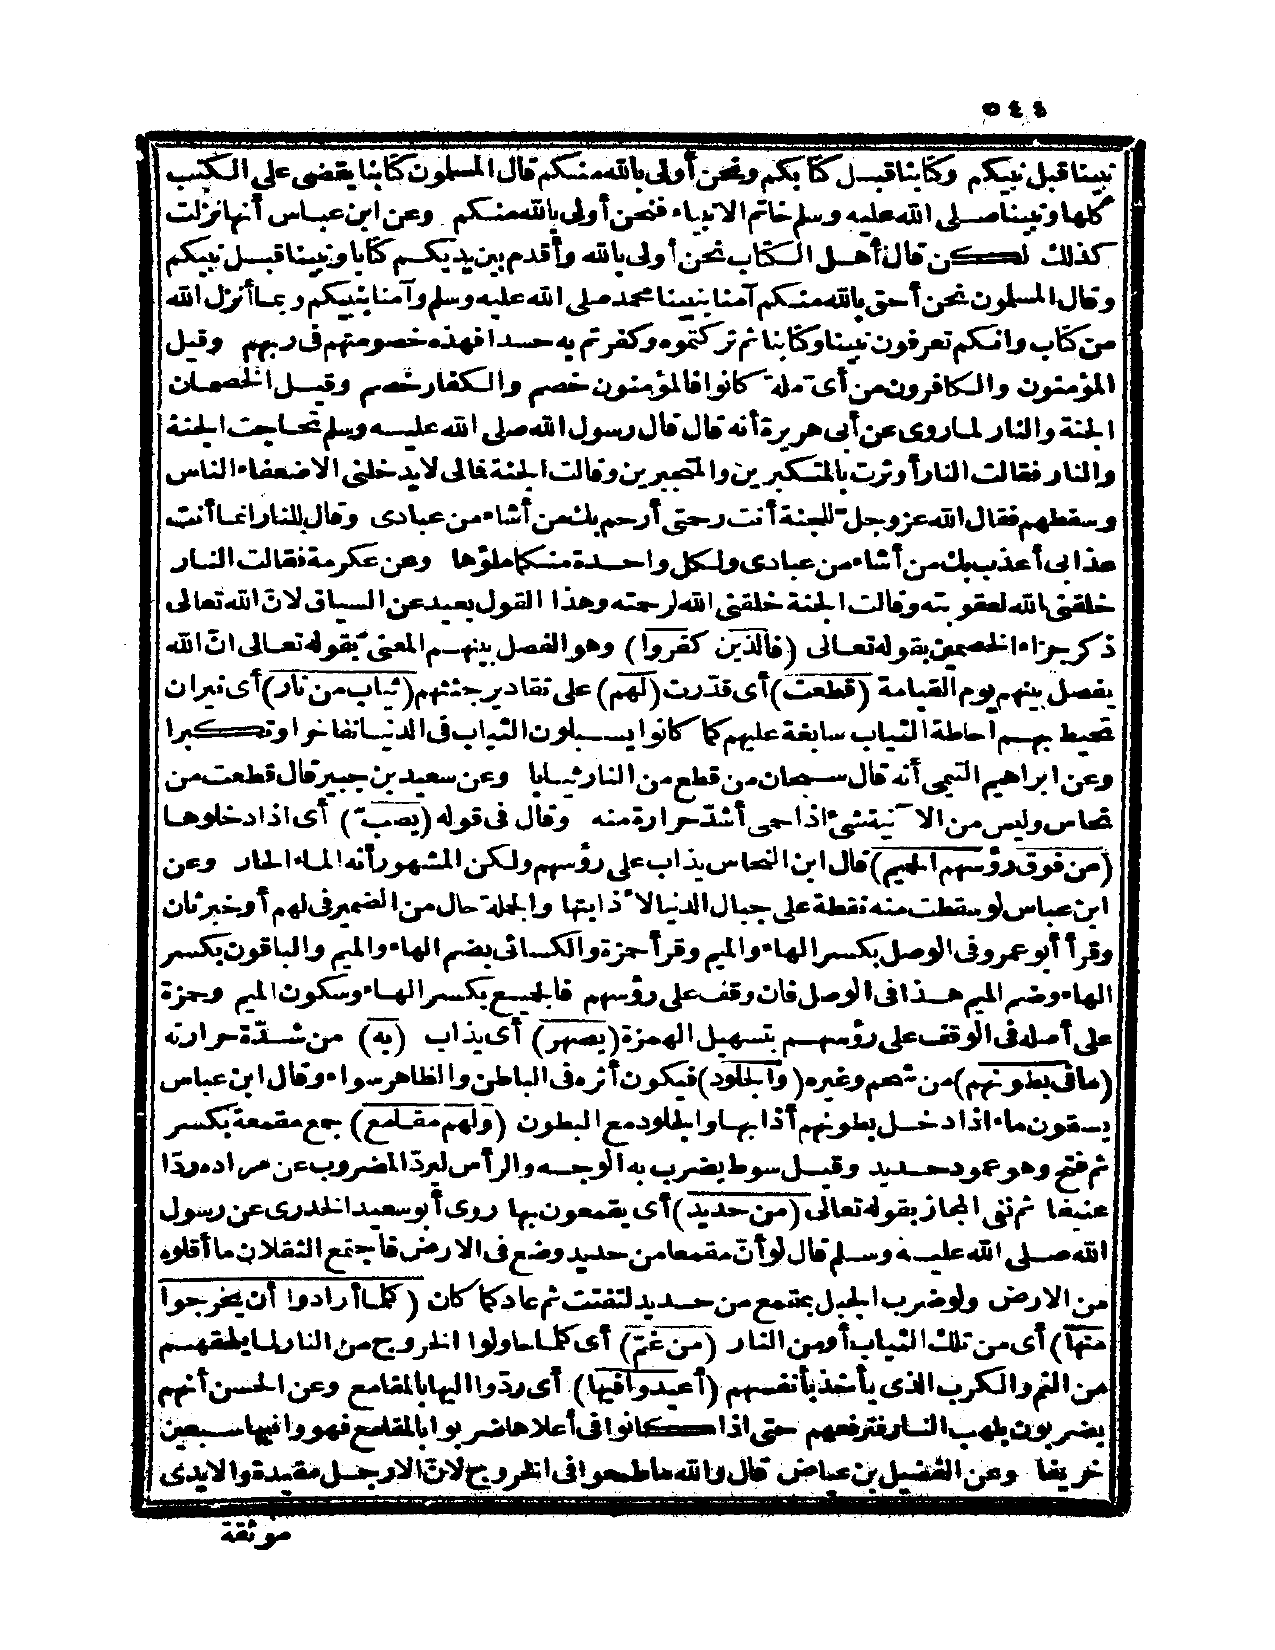 ٥٤٤
نبينا قبل نبيكم وكتابنا قبل كتابكم ونحن أولى بالله منكم قال المسلمون كتابنا يقضى على الكتب
كلها ونبينا صلى الله عليه وسلم خاتم الانبياء فنحن أولى بالله منكم وعن ابن عباس أنها نزلت
كذلك لكن قال أهل الكتاب نحن أولى بالله وأقدم بين يديكم كتابا ونبينا قبل نبيكم
وقال المسلمون نحن أحق بالله منكم آمنا بنبينا محمد صلى الله عليه وسلم وآمنا بنبيكم وبما أنزل الله
من كتاب وانكم تعرفون نبينا وكتابنا ثم تركتموه وكفرتم به حسدا فهذه خصومتهم فى ربهم وقيل
المؤمنون والكافرون من أىّ ملة كانوا فالمؤمنون خصم والكفار خصم وقيل الخصمان
الجنة والنار لما روى عن أبى هريرة أنه قال قال رسول الله صلى الله عليه وسلم تحاجت الجنة
والنار فقالت النار أوثرت بالمتكبرين والمتجبرين وقالت الجنة فمالى لا يدخلنى الا ضعفاء الناس
وسقطهم فقال الله عز وجل للجنة أنت رحمتى أرحم بك من أشاء من عبادى وقال للنار انما أنت
عذابى أعذب بك من أشاء من عبادى ولكل واحدة منكما ملؤها وعن عكرمة فقالت النار
خلقنى الله لعقوبته وقالت الجنة خلقنى الله لرحمته وهذا القول بعيد عن السياق لانّ الله تعالى
ذكر جزاء الخصمين بقوله تعالى (فالذين كفروا) وهو الفصل بينهم المعنىّ بقوله تعالى انّ الله
يفصل بينهم يوم القيامة (قطعت) أى قدّرت (لهم) على تقادير جثثهم (ثياب من نار) أى نيران
تحيط بهم احاطة الثياب سابغة عليهم كما كانوا يسبلون الثياب فى الدنيا تفاخرا وتكبرا
وعن ابراهيم التيمى أنه قال سبحان من قطع من النار ثيابا وعن سعيد بن جبير قال قطعت من
نحاس وليس من الآنية شئ اذا حمى أشدّ حرارة منه وقال فى قوله (يصبّ) أى اذا دخلوها
(من فوق رؤسهم الحميم) قال ابن النحاس يذاب على رؤسهم ولكن المشهور أنه الماء الحار وعن
ابن عباس لو سقطت منه نقطة على جبال الدنيا لا ذابتها والجملة حال من الضمير فى لهم أو خبر ثان
وقرأ أبو عمرو فى الوصل بكسر الهاء والميم وقرأ حمزة والكسائى بضم الهاء والميم والباقون بكسر
الهاء وضم الميم هذا فى الوصل فان وقف على رؤسهم فالجميع بكسر الهاء وسكون الميم وحمزة
على أصله فى الوقف على رؤسهم بتسهيل الهمزة (يصهر) أى يذاب (به) من شدّة حرارته
(ما فى بطونهم) من شحم وغيره (والجلود) فيكون أثره فى الباطن والظاهر سواء وقال ابن عباس
يسقون ماء اذا دخل بطونهم أذابها والجلود مع البطون (ولهم مقامع) جمع مقمعة بكسر
ثم فتح وهو عمود حديد وقيل سوط يضرب به الوجه والرأس ليردّ المضروب عن مراده ردّا
عنيفا ثم نفى المجاز بقوله تعالى (من حديد) أى يقمعون بها روى أبو سعيد الخدرى عن رسول
الله صلى الله عليه وسلم قال لو أنّ مقمعا من حديد وضع فى الارض فاجتمع الثقلان ما أقلوه
من الارض ولو ضرب الجبل بمقمع من حديد لتفتت ثم عاد كما كان (كلما أرادوا أن يخرجوا
منها) أى من تلك الثياب أو من النار (من غمّ) أى كلما حاولوا الخروج من النار لما يلحقهم
من الغم والكرب الذى يأخذ بأنفسهم (أعيدوا فيها) أى ردّوا اليها بالمقامع وعن الحسن أنهم
يضربون بلهب النار فترفعهم حتى اذا كانوا فى أعلاها ضربوا بالمقامع فهووا فيها سبعين
خريفا وعن الفضيل بن عياض قال والله ما طمعوا فى الخروج لانّ الارجل مقيدة والايدى
موثقة